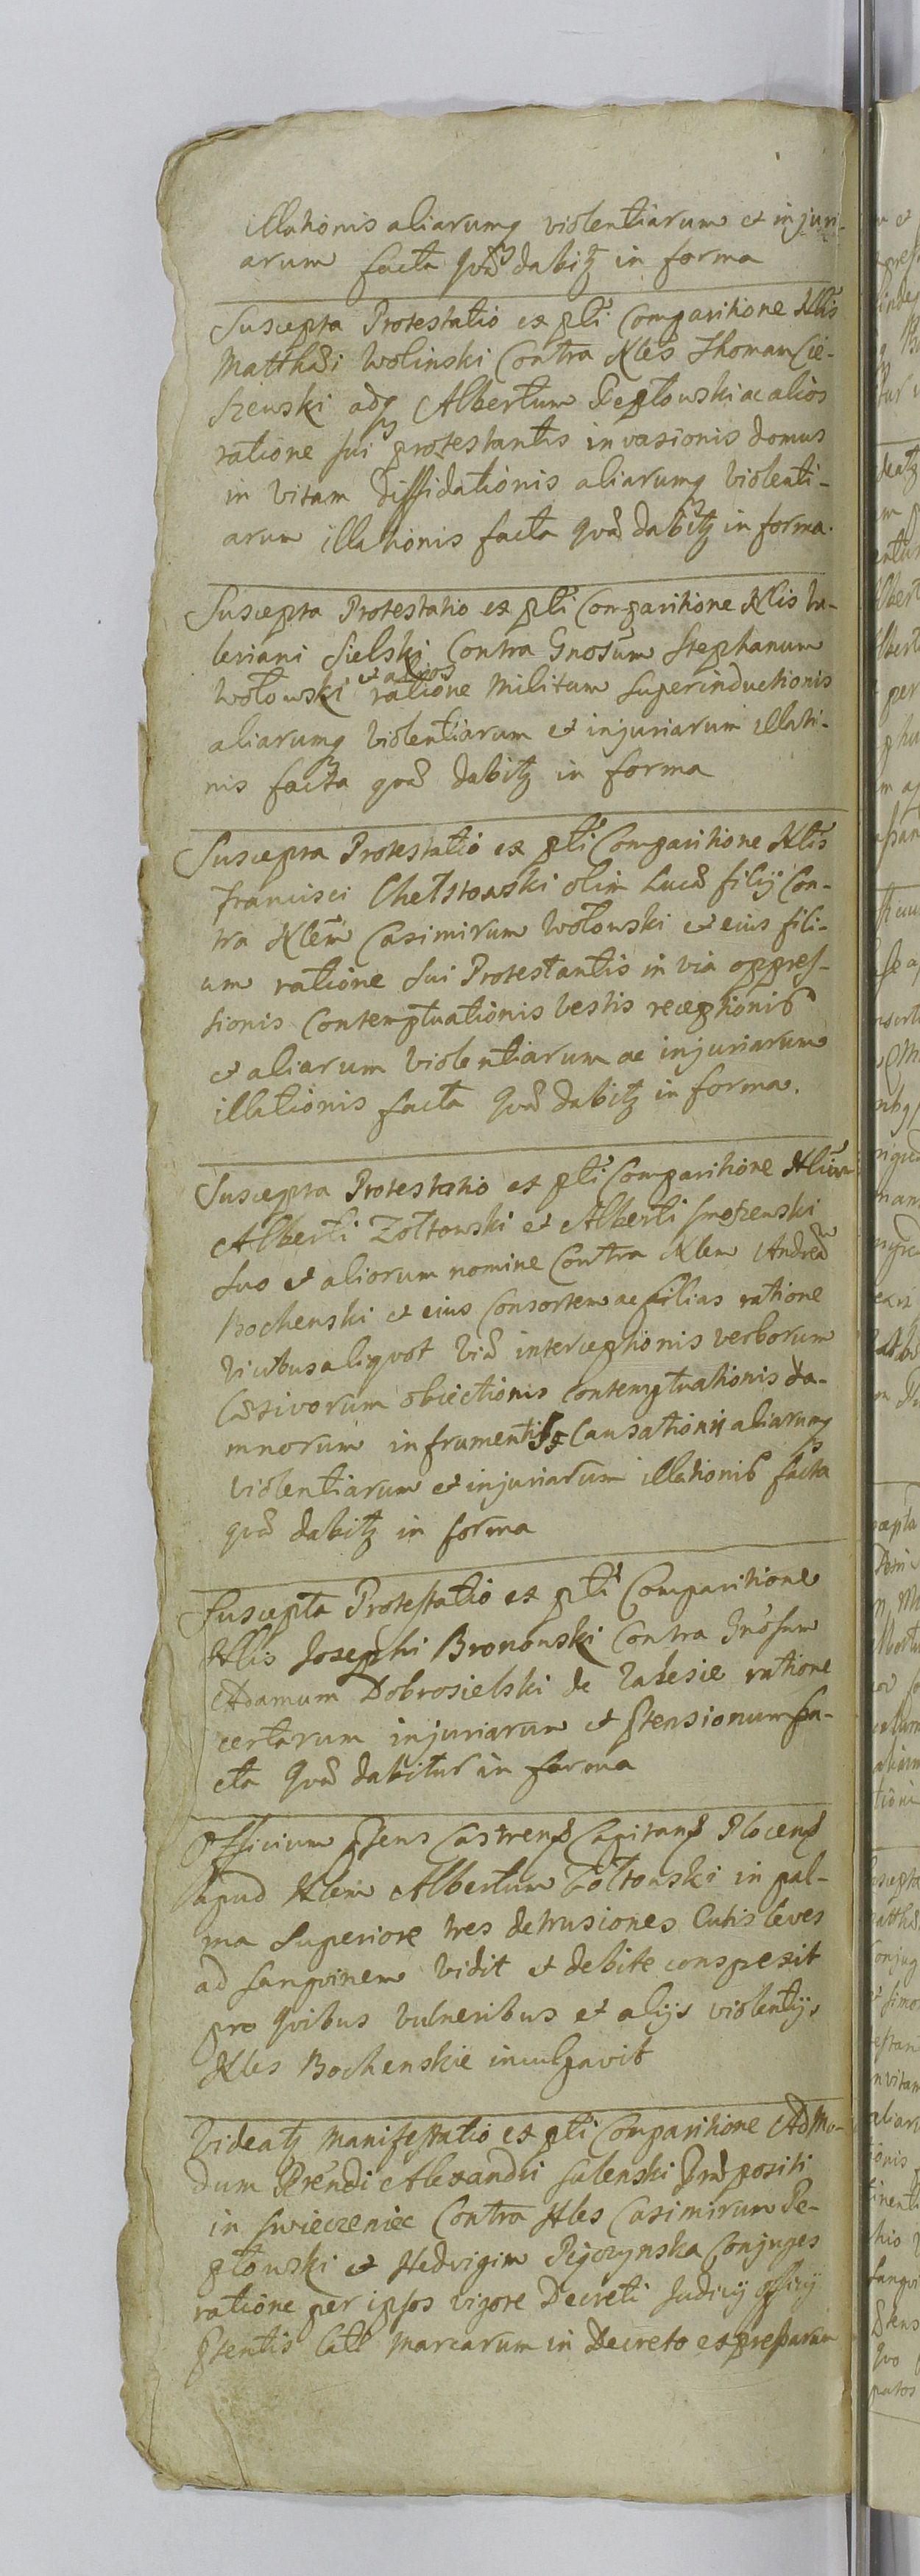 illationis aliarumq violentiarum et injuri-
arum facta quae dabitz in forma
Suscepta Protestatio ex pti Comparitione Nlis
Matthaei Wolinski Contra Nles Thomam Cie-
szewski adq Albertum Peplowski ac alios
ratione sui protestantis invasionis domus
in vitam diffidationis aliarumq violenti-
arum illationis facta quae dabitz in forma.
Suscepta Protestatio ex pti Comparitione Nlis Va-
leriani Sielski Contra Gnosum Stephanum
Wołowski et alios ratione Militum superinductionis
aliarumq violentiarum et injuriarum illati-
nis facta quae dabitz in forma
Suscepta Protestatio ex pti Comparitione Nlis
Francisci Chełstowski olim Lucae filij Con-
tra Nlem Casimirum Wołowski et eius fili-
um ratione sui Protestantis in via oppres-
sionis Contemptuationis vestis receptionis
et aliarum violentiarum ac injuriarum
illationis facta quae dabitz in forma.
Suscepta Protestatio ex pti Comparitione Nlium
Alberti Zołtowski et Alberti
suo et aliorum nomine Contra Nlem Andream
Bochenski et eius Consortem ac filias ratione
vicibus aliquot viae interceptionis verborum
Laesivorum obiectionis contemptuationis da-
mnorum in frumentis Causationis aliarumq
violentiarum et injuriarum illationis facta
quae dabitz in forma
Suscepta Protestatio ex pti Comparitione
Nlis Josephi Bronowski Contra Gnosum
Adamum Dobrosielski de Zalesie ratione
certarum injuriarum et ptensionum fa-
cta quae dabitur in forma
Officium psens Castrense Capitane Plocense
apud Nlem Albertum Zołtowski in pal-
ma superiore tres detrusiones Cutis leves
ad sanguinem vidit et debite conspexit
pro quibus vulneribus et alijs violentijs
Nles Bochenskie inculpavit
Videatz Manifestatio ex pti Comparitione AdMo-
dum Rrendi Alexandri Salenski Praepositi
in Swieczeniec Contra Nles Casimirum Pe-
płowski et Hedvigim Pigczynska Conjuges
ratione per ipsos vigore Decreti Judicij officij
psentis Marcarum in Decreto expressarum